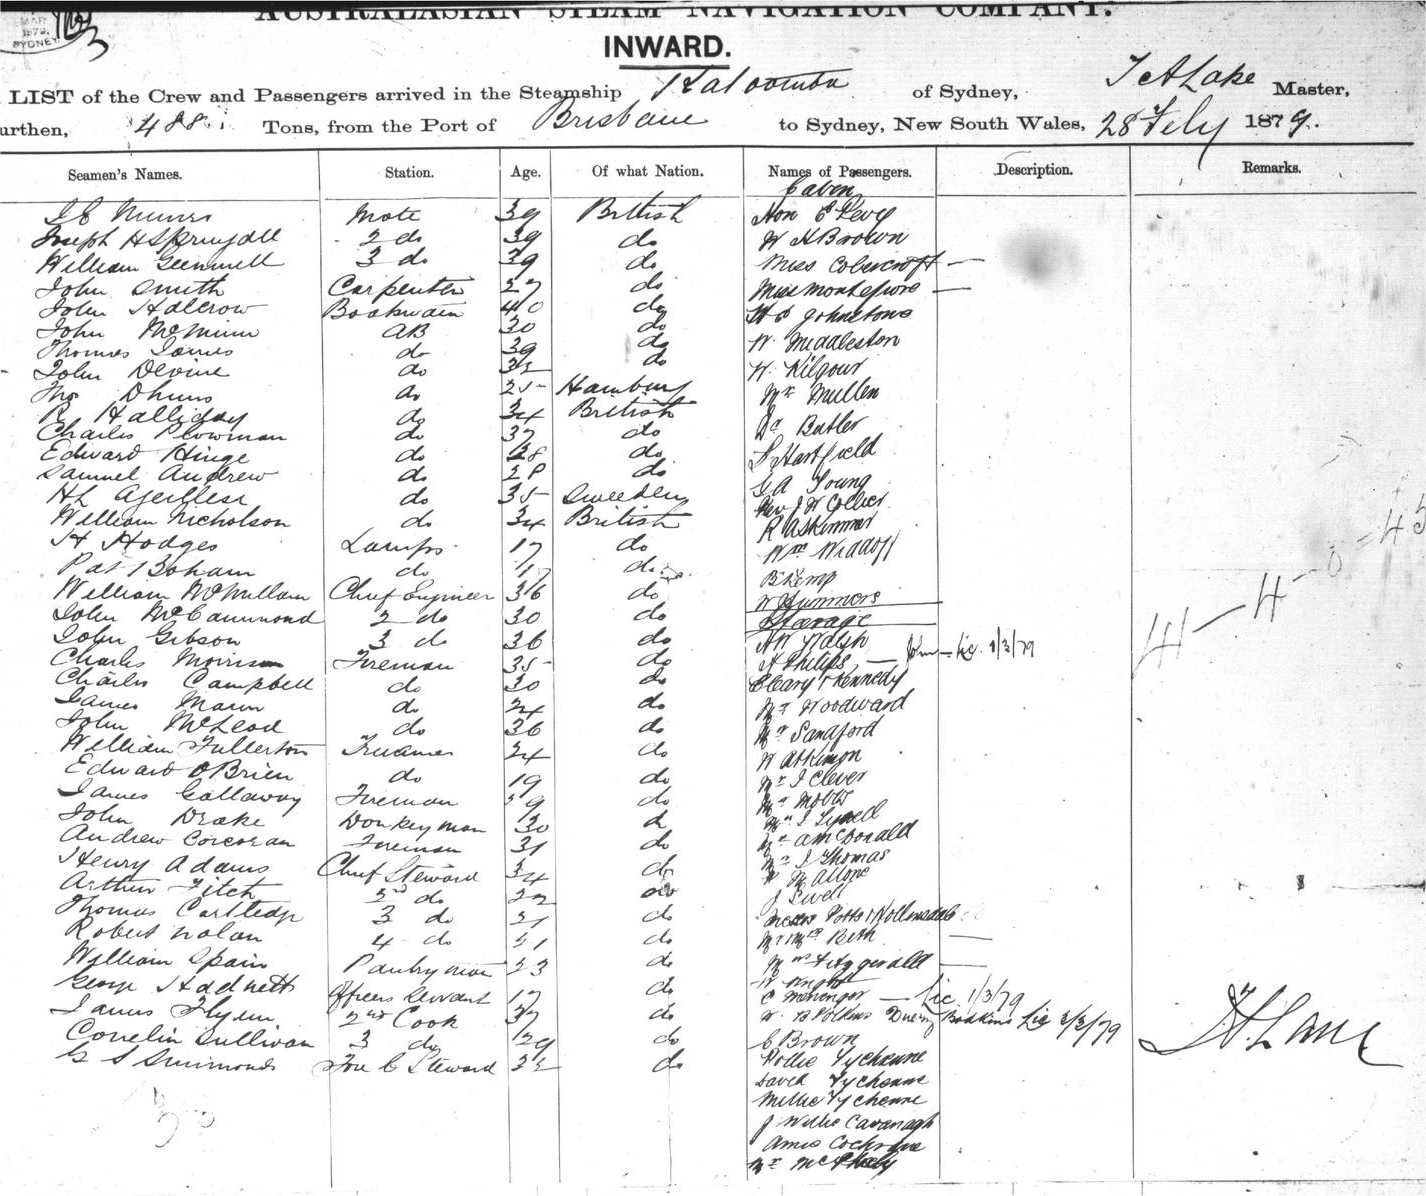 MAR
1879
SYDNEY
AUSTRALASIAN STEAM NAVIGATION COMPANY.
INWARD.
LIST of the Crew and Passengers arrived in the Steamship Katoomba of Sydney, Master,
urthen, 488 Tons, from the Port of Brisbane to Sydney, New South Wales, 28 Feby 1879.
Seamen's Names. Station. Age. Of what Nation. Names of Passengers. Description. Remarks.
Cabin
Munro Mate 39 British Hon E Levy
Joseph H Springall 2 do 39 do W H Brown
William Gemmell 3 do 39 do Miss Cobcroft
John Smith Carpenter 27 do Miss Montefiore
John Halcrow Boatswain 40 do Johnstone
John McMinn AB 30 do W. Middleston
Thomas James do 39 do W. Kilgour
John Devine do 32 do Mr Mullen
Thos do 25 Hamburg Dr Butler
R Halliday do 34 British S Hartfield
Charles Plowman do 37 do G A Young
Edward Hinge do 28 do Rev J W Collier
Samuel Andrew do 28 do
do 35 Sweeden Wm
William Nicholson do 34 British B Kemp
H Hodges Lamps 17 do W Summers
Pat Boham do 17 do Steerage
William McMillan Chief Engineer 36 do W Walsh
John McCammond 2 do 30 do A Philips — John — Lic. 1/3/79
John Gibson 3 do 36 do Cleary & Kennedy
Charles Morrison Fireman 35 do Mr Woodward
Charles Campbell do 30 do Mr Sandford
James Mann do 24 do W Atkinson
John McLeod do 36 do Mr J Clever
William Fullerton Trimmer 24 do Mr Mobbs
Edward O Brien do 19 do Mr J Tyrell
James Gallaway Fireman 29 do Mr A McDonald
John Drake Donkeyman 30 do Mr J Thomas
Andrew Corcoran Fireman 31 do W Mallone
Henry Adams Chief Steward 34 do J
Arthur Fitch 2nd do 22 do Messrs Potts & Hollinsdale
Thomas Cartledge 3 do 21 do Mr & Mrs Beth
Robert Nolan 4 do 21 do Mrs Fitzgerald
William Spain Pantryman 23 do W Knight
George Hadnett Officers Servant 17 do C Mevenger — Lic. 1/3/79
James Flynn 2nd Cook 37 do W. B Bodkins Lic 3/3/79
Cornelin Sullivan 3 do 29 do C Brown
G S Simmonds Fore C Steward 32 do Rollie Tycherne
David Tycherne
Millie Tycherne
J Willie Cavanagh
Amie Cochrane
Mr